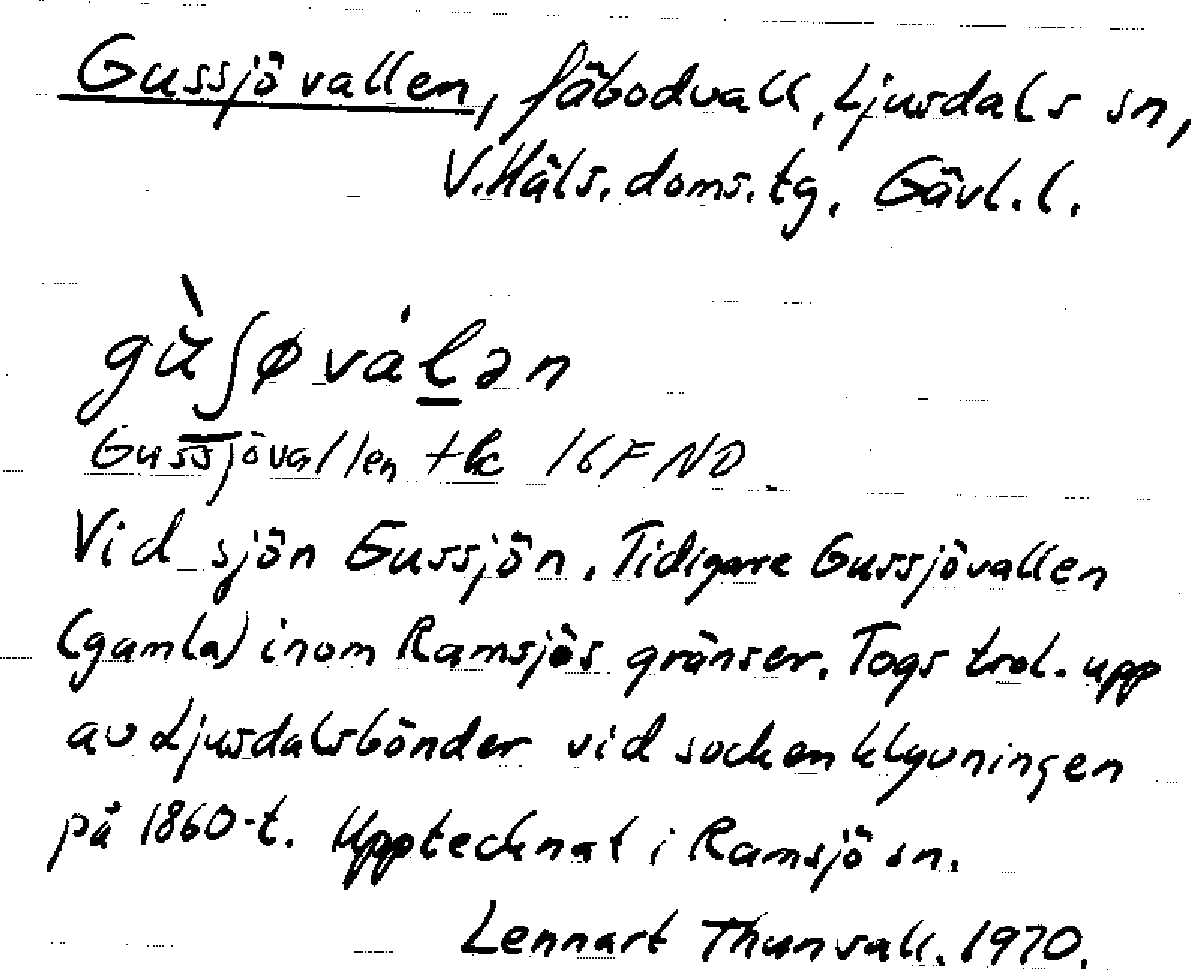 Gussjövallen, fäbodvall, Ljusdals sn,
V.Häls. doms.tg. Gävl.l.
gùʃøválən
Gussjövallen tk 16F NO
Vid sjön Gussjön. Tidigare Gussjövallen
(gamla) inom Ramsjös gränser. Togs trol. upp
av Ljusdalsbönder vid sockenklyvningen
på 1860-t. Upptecknat i Ramsjö sn.
Lennart Thunvall. 1970.